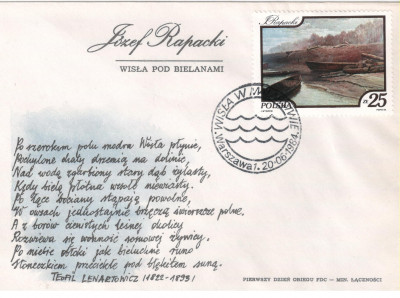 Józef Rapacki
WISŁA POD BIELANAMI
J. Rapacki
POLSKA
zł 25
WISŁA W MALARSTWIE
Warszawa 1. 20-06-1984
Po szerokiem polu modra Wisła płynie,
Pochylone chaty drzemią na dolinie,
Nad wodą zgarbiony stary dąb żylasty,
Kędy bielą płótna wesołe niewiasty.
Po łące bociany stąpają powolne,
W owsach jednostajnie brzęczą świerszcze polne.
A z borów cienistych leśnej okolicy
Rozwiewa się wonność sosnowej żywicy.
Po niebie obłoki jak bieluchne runo
Koneczkiem przeciekłe pod błękitem suną.
TEOFIL LENARTOWICZ (1822-1893)
PIERWSZY DZIEŃ OBIEGU FDC — MIN. ŁĄCZNOŚCI